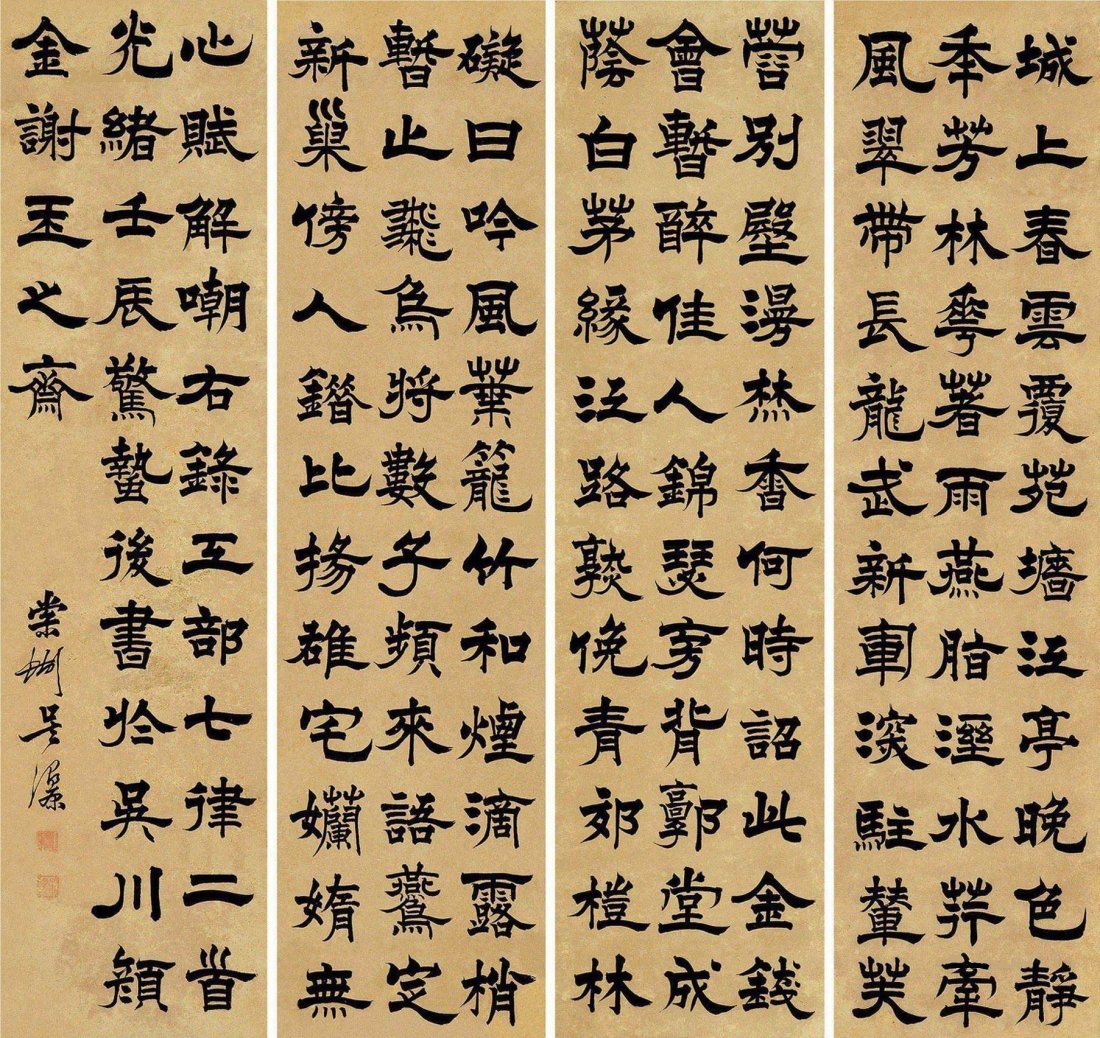 城上春雲覆苑墻江亭晚色靜
年芳林花著雨燕脂溼水荇牽
風翠帶長龍武新軍深駐輦芙
蓉別殿漫焚香何時詔此金錢
會暫醉佳人錦瑟旁背郭堂成
蔭白茅緣江路熟俛青郊榿林
礙日吟風葉籠竹和煙滴露梢
暫止飛烏將數子頻來語燕定
新巢傍人錯比揚雄宅嬾惰無
心賦解嘲右錄工部七律二首
光緒壬辰驚蟄後書於吳川
金謝玉之齋
吳